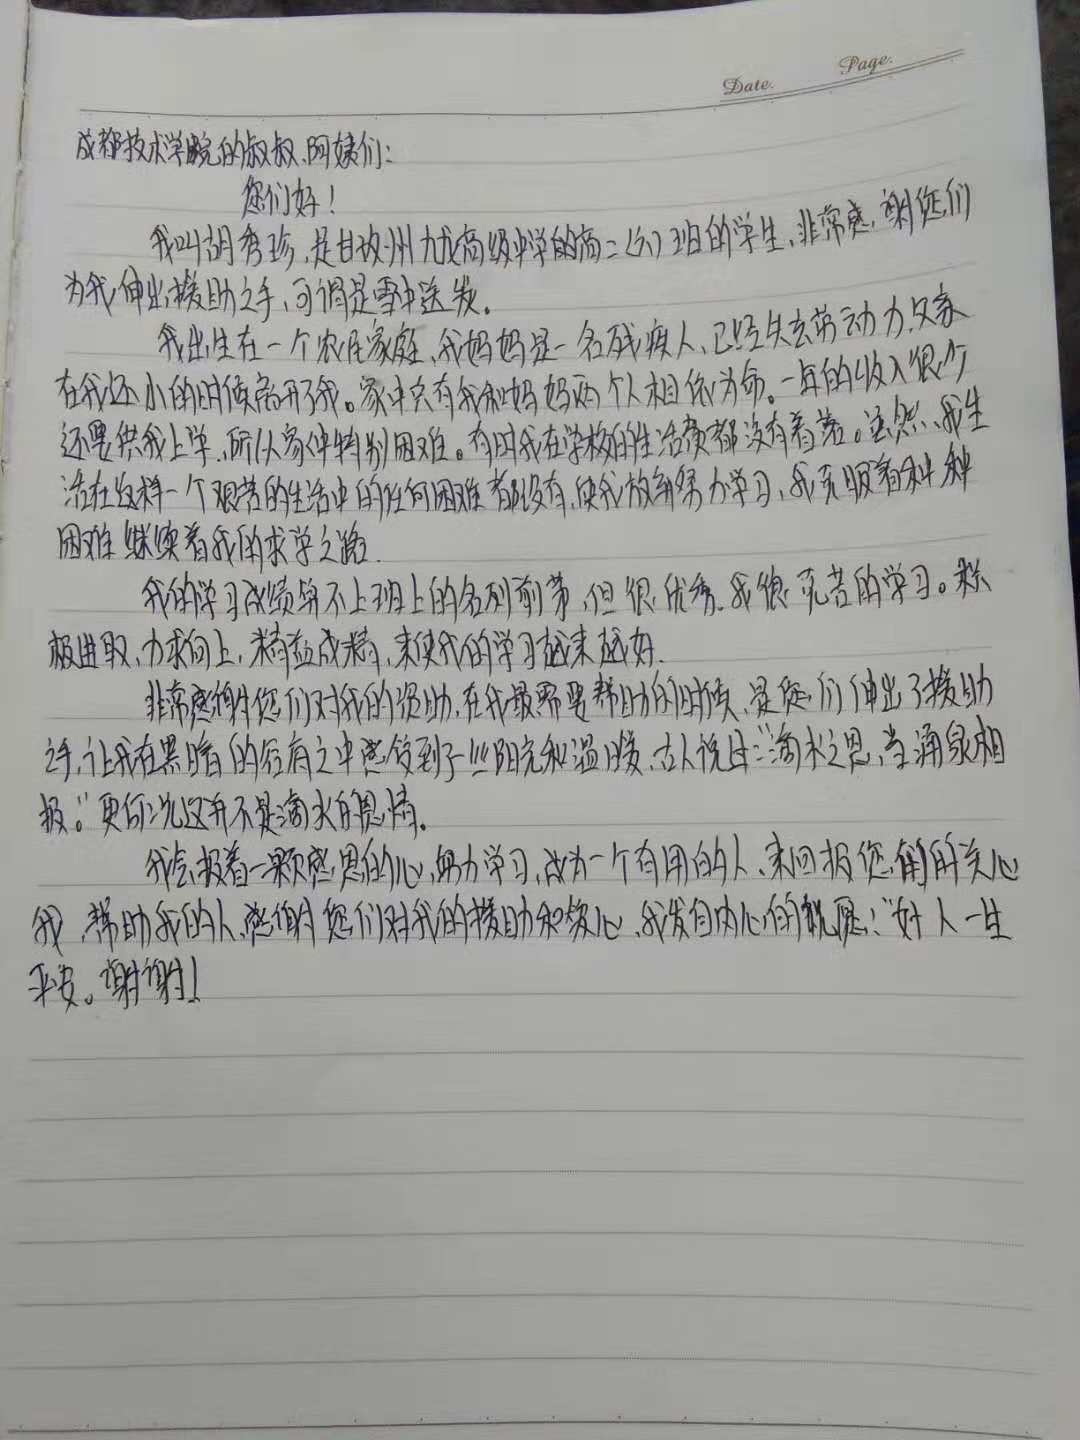 Date.
Page.
成都技术学院的叔叔、阿姨们：
您们好！
我叫胡秀珍，是甘孜州九龙高级中学的高二（六）班的学生，非常感谢您们
为我伸出援助之手，可谓是雪中送炭。
我出生在一个农民家庭，我妈妈是一名残疾人，已经失去劳动力，父亲
在我还小的时候离开了我。家中只有我和妈妈两个人相依为命。一年的收入很少
还要供我上学，所以家中特别困难。有时我在学校的生活费都没有着落。虽然，我生
活在这样一个艰苦的生活中的任何困难都没有，使我放弃努力学习，我克服着种种
困难继续着我的求学之路.
我的学习成绩算不上班上的名列前茅，但很优秀.我很克苦的学习。积
极进取，力求向上，精益成精，来使我的学习越来越好.
非常感谢您们对我的资助.在我最需要帮助的时候，是您们伸出了援助
之手，让我在黑暗的之中感受到了一丝阳光和温暖，古人说过："滴水之恩，当涌泉相
报。"更何况这并不是滴水的恩情。
我会报着一颗感恩的心，努力学习，成为一个有用的人，来回报您们的关心
我，帮助我的人，感谢您们对我的援助和爱心，我发自内心的祝愿："好人一生
平安。谢谢！